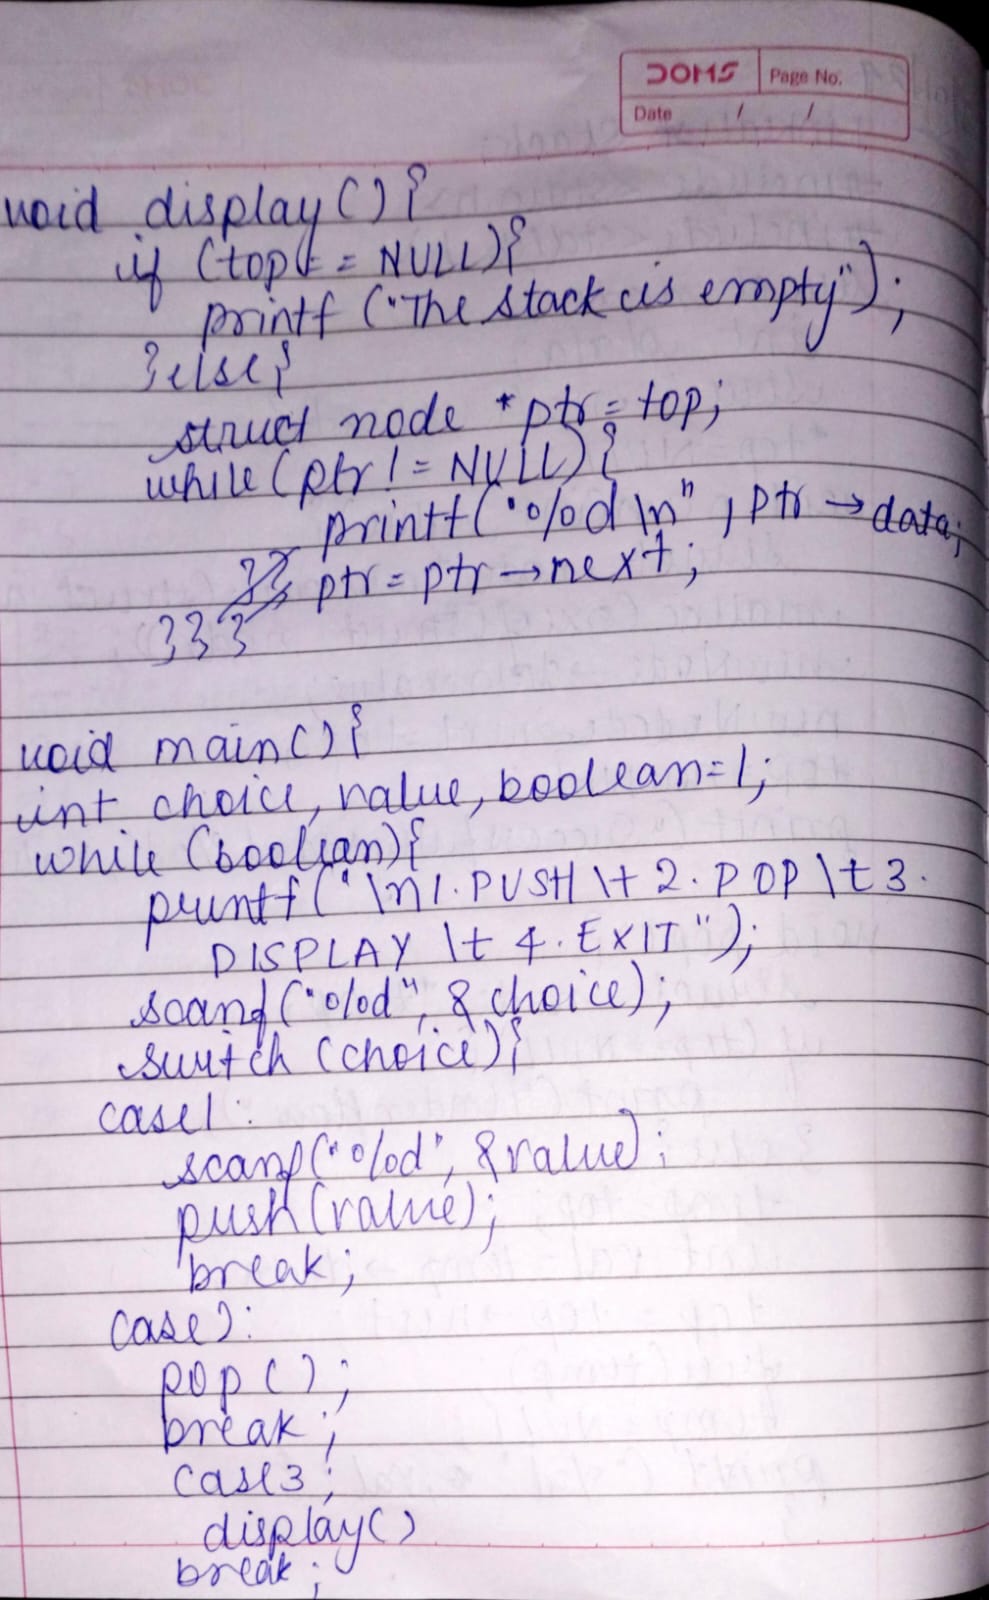 DOMS Page No.
Date / /
void display() {
if (top == NULL){
printf ("The stack is empty");
}else{
struct node *ptr = top;
while (ptr != NULL) {
printf("%d \n", ptr → data;
ptr = ptr → next;
}}}
void main() {
int choice, value, boolean=1;
while (boolean){
printf("\n1. PUSH \t 2. POP \t 3.
DISPLAY \t 4. EXIT");
scanf("%d", &choice);
switch (choice){
case1:
scanf("%d", &value);
push(value);
break;
case2:
pop();
break;
case3;
display()
break;